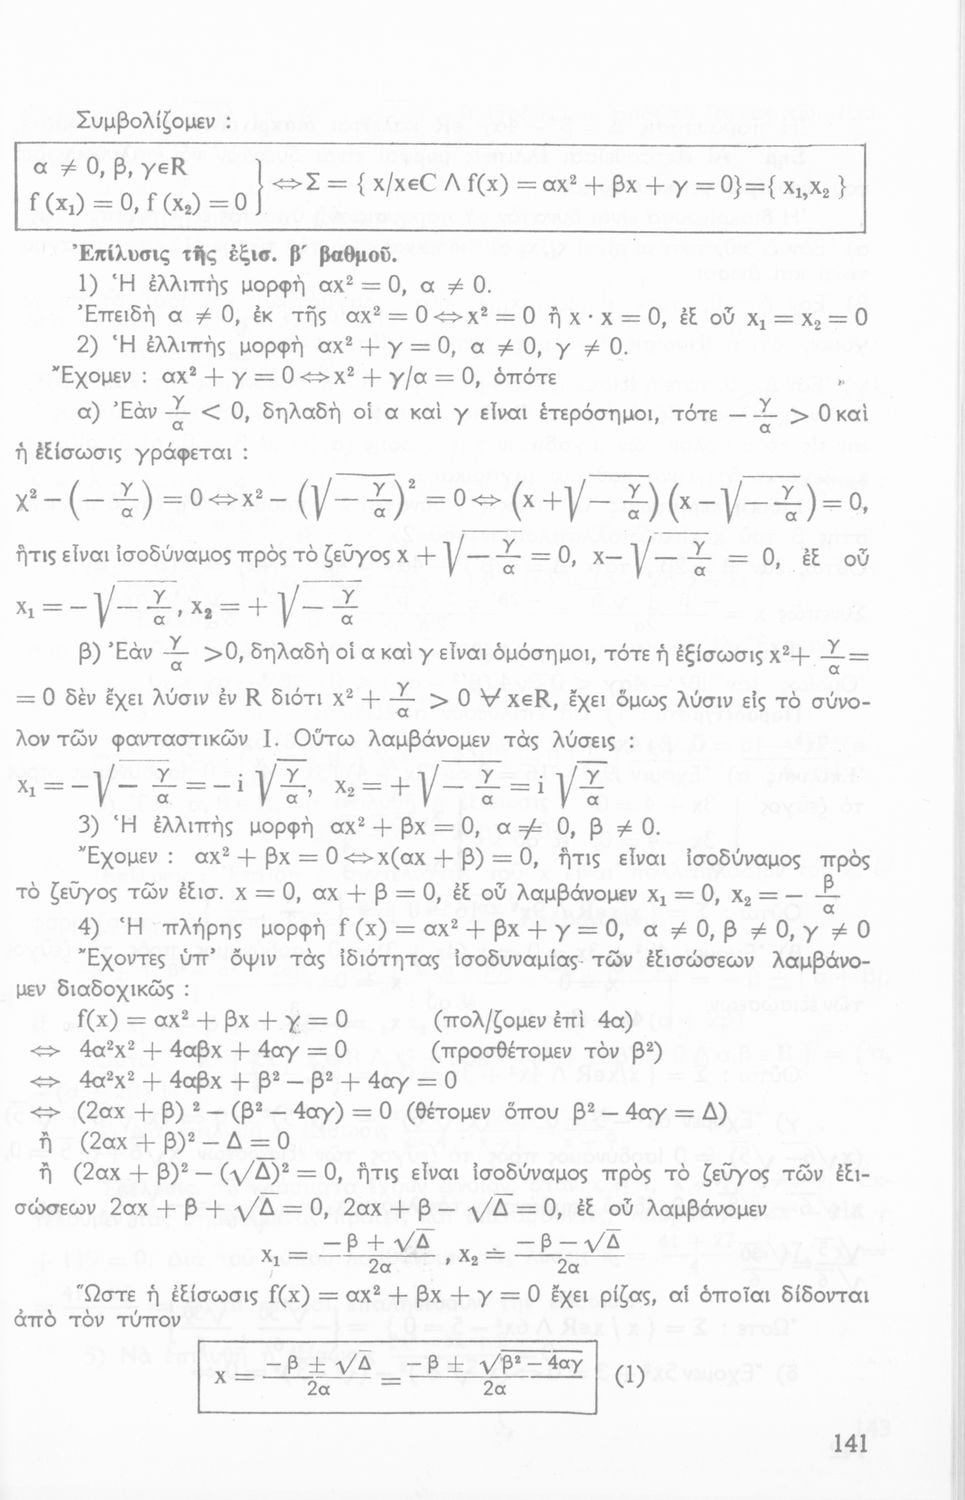 Συμβολίζομεν :
α ≠ 0, β, γεR
f (x₁) = 0, f (x₂) = 0 } <=> Σ = { x/xεC Λ f(x) = αx² + βx + γ = 0}={ x₁,x₂ }
Ἐπίλυσις τῆς ἐξισ. β´ βαθμοῦ.
1) Ἡ ἐλλιπὴς μορφὴ αx² = 0, α ≠ 0.
Ἐπειδὴ α ≠ 0, ἐκ τῆς αx² = 0 <=> x² = 0 ἢ x · x = 0, ἐξ οὗ x₁ = x₂ = 0
2) Ἡ ἐλλιπὴς μορφὴ αx² + γ = 0, α ≠ 0, γ ≠ 0.
Ἔχομεν : αx² + γ = 0 <=> x² + γ/α = 0, ὁπότε
α) Ἐὰν γ/α < 0, δηλαδὴ οἱ α καὶ γ εἶναι ἑτερόσημοι, τότε — γ/α > 0 καὶ
ἡ ἐξίσωσις γράφεται :
χ² — (— γ/α) = 0 <=> x² — (√— γ/α)² = 0 <=> (x +√— γ/α) (x —√— γ/α) = 0,
ἥτις εἶναι ἰσοδύναμος πρὸς τὸ ζεῦγος x + √— γ/α = 0, x— √— γ/α = 0, ἐξ οὗ
x₁ = — √— γ/α, x₂ = + √— γ/α
β) Ἐὰν γ/α >0, δηλαδὴ οἱ α καὶ γ εἶναι ὁμόσημοι, τότε ἡ ἐξίσωσις x²+ γ/α =
= 0 δὲν ἔχει λύσιν ἐν R διότι x² + γ/α > 0 ∀ xεR, ἔχει ὅμως λύσιν εἰς τὸ σύνο-
λον τῶν φανταστικῶν I. Οὕτω λαμβάνομεν τὰς λύσεις :
x₁ = — √— γ/α = — i √γ/α, x₂ = + √— γ/α = i √γ/α
3) Ἡ ἐλλιπὴς μορφὴ αx² + βx = 0, α ≠ 0, β ≠ 0.
Ἔχομεν : αx² + βx = 0 <=> x(αx + β) = 0, ἥτις εἶναι ἰσοδύναμος πρὸς
τὸ ζεῦγος τῶν ἐξισ. x = 0, αx + β = 0, ἐξ οὗ λαμβάνομεν x₁ = 0, x₂ = — β/α
4) Ἡ πλήρης μορφὴ f (x) = αx² + βx + γ = 0, α ≠ 0, β ≠ 0, γ ≠ 0
Ἔχοντες ὑπ᾽ ὄψιν τὰς ἰδιότητας ἰσοδυναμίας τῶν ἐξισώσεων λαμβάνο-
μεν διαδοχικῶς :
f(x) = αx² + βx + γ = 0 (πολ/ζομεν ἐπὶ 4α)
<=> 4α²x² + 4αβx + 4αγ = 0 (προσθέτομεν τὸν β²)
<=> 4α²x² + 4αβx + β² — β² + 4αγ = 0
<=> (2αx + β) ² — (β² — 4αγ) = 0 (θέτομεν ὅπου β² — 4αγ = Δ)
ἢ (2αx + β)² — Δ = 0
ἢ (2αx + β)² — (√Δ)² = 0, ἥτις εἶναι ἰσοδύναμος πρὸς τὸ ζεῦγος τῶν ἐξι-
σώσεων 2αx + β + √Δ = 0, 2αx + β — √Δ = 0, ἐξ οὗ λαμβάνομεν
x₁ = (—β + √Δ)/2α, x₂ = (—β — √Δ)/2α
Ὥστε ἡ ἐξίσωσις f(x) = αx² + βx + γ = 0 ἔχει ρίζας, αἱ ὁποῖαι δίδονται
ἀπὸ τὸν τύπον
x = (—β ± √Δ)/2α = (—β ± √β² — 4αγ)/2α (1)
141